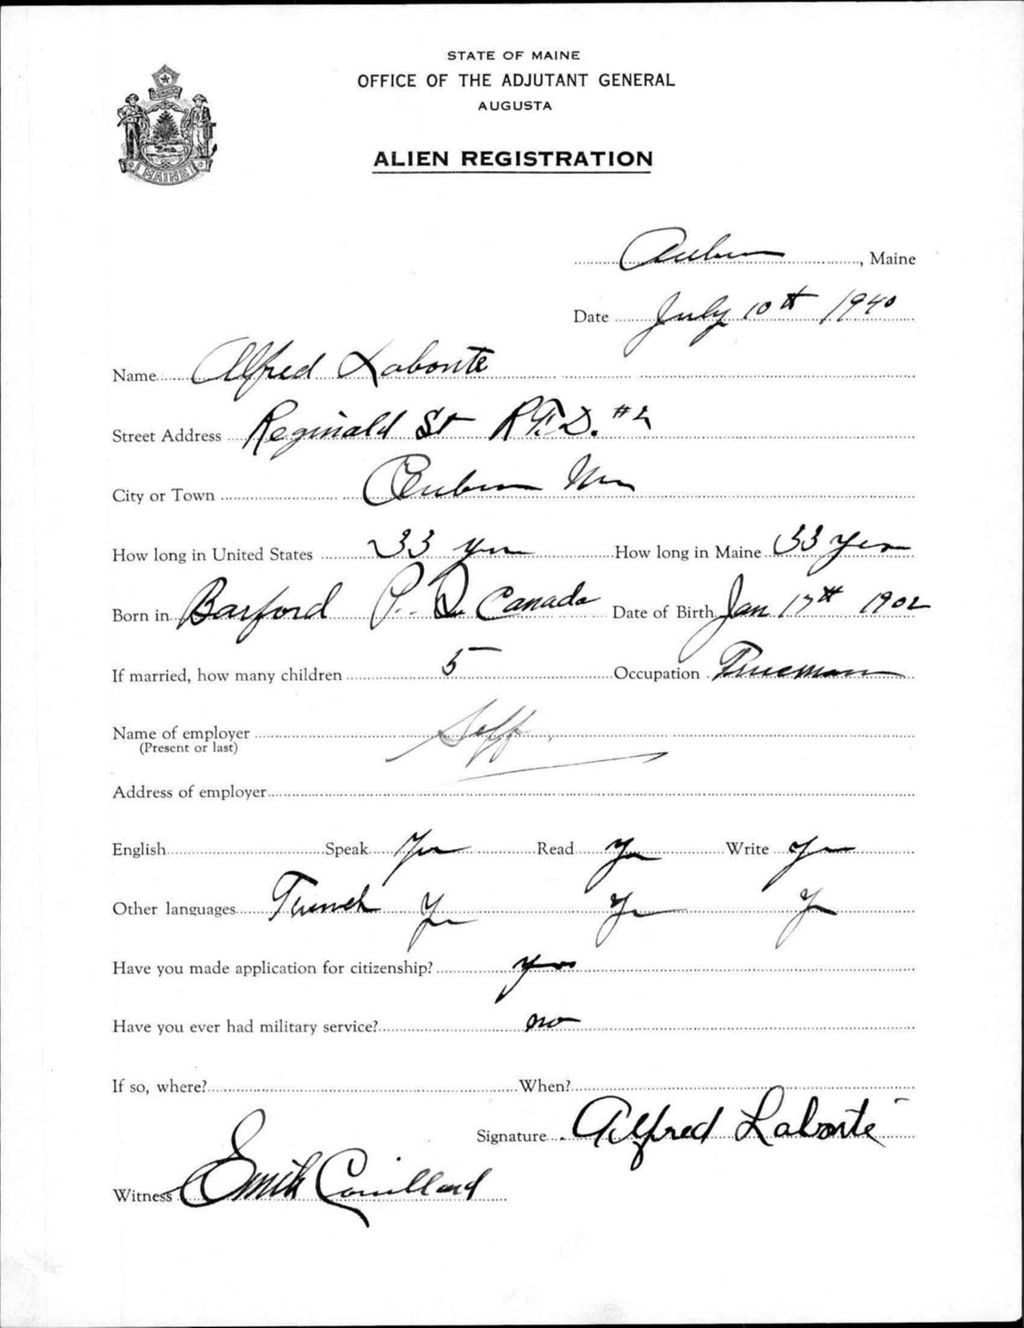 STATE OF MAINE
OFFICE OF THE ADJUTANT GENERAL
AUGUSTA
ALIEN REGISTRATION
MAINE
Auburn, Maine
Date July 10th 1940
Name Alfred Labonte
Street Address Reginald St R.F.D. #2
City or Town Auburn Me
How long in United States 33 yrs How long in Maine 33 years
Born in Barford P. Q. Canada Date of Birth Jan 17th 1902
If married, how many children 5 Occupation
Name of employer Self
(Present or last)
Address of employer
English Speak Yes Read Yes Write Yes
Other languages French Yes Yes Yes
Have you made application for citizenship? yes
Have you ever had military service? no
If so, where? When?
Signature Alfred Labonté
Witness Couillard